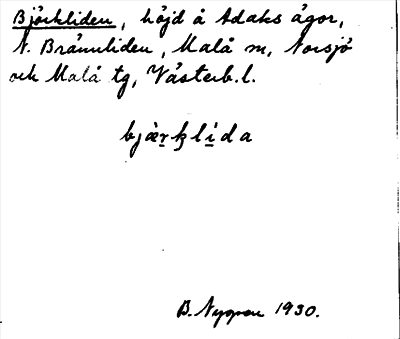 Björkliden, höjd å Adaks ägor,
N. Brännliden, Malå sn, Norsjö
och Malå tg, Västerb. l.
bjæ̀r̲ꜧlí̲da
B. Nygren 1930.